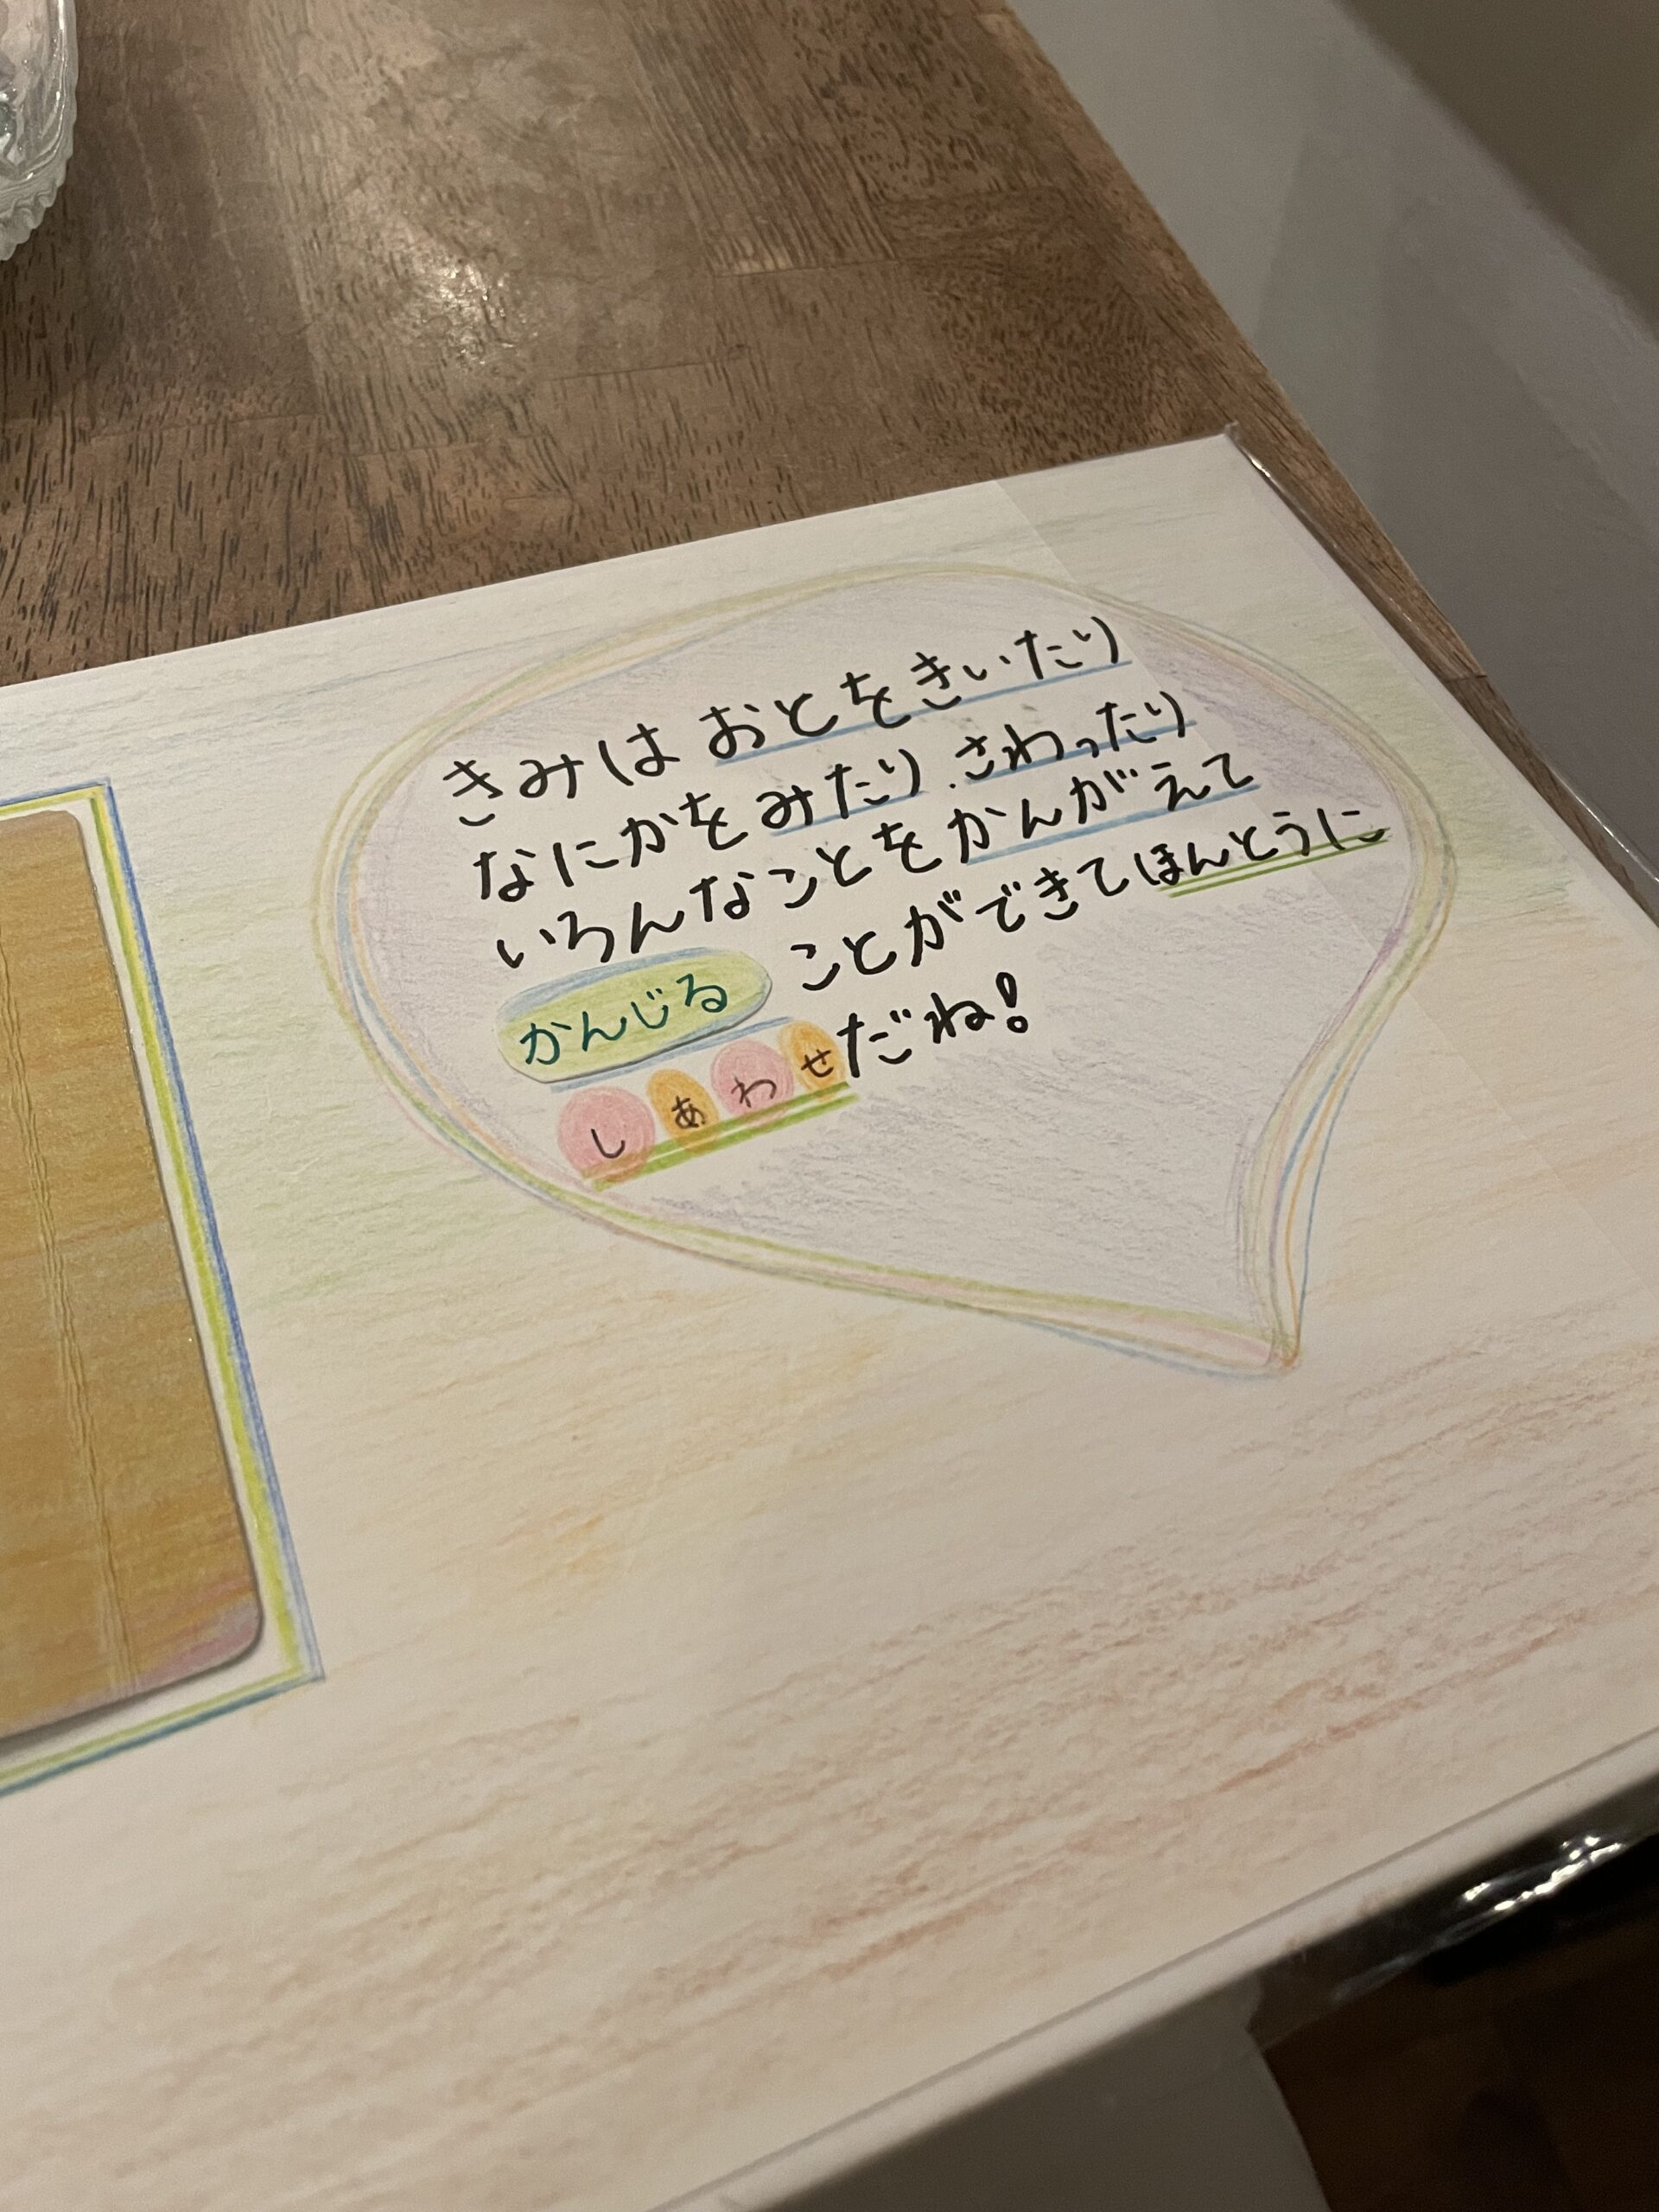 きみは おとをきいたり
なにかをみたり.さわったり
いろんなことをかんがえて
かんじる ことができてほんとうに
しあわせだね!